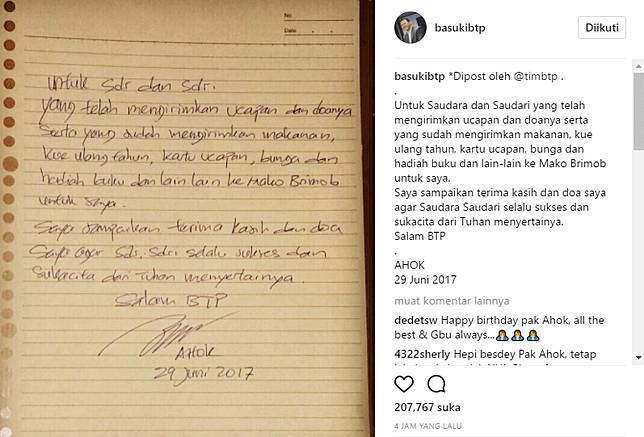 No.
Date
untuk sdr dan sdri.
yang telah mengirimkan ucapan dan doanya
serta yang sudah mengirimkan makanan,
kue ulang tahun, kartu ucapan, bunga dan
hadiah buku dan lain lain ke Mako Brimob
untuk saya.
Saya sampaikan terima kasih dan doa
saya agar sdr. sdri selalu sukses dan
sukacita dari Tuhan menyertainya.
Salam BTP
AHOK
29 Juni 2017
basukibtp
Diikuti
basukibtp *Dipost oleh @timbtp .
.
Untuk Saudara dan Saudari yang telah
mengirimkan ucapan dan doanya serta
yang sudah mengirimkan makanan, kue
ulang tahun, kartu ucapan, bunga dan
hadiah buku dan lain-lain ke Mako Brimob
untuk saya.
Saya sampaikan terima kasih dan doa saya
agar Saudara Saudari selalu sukses dan
sukacita dari Tuhan menyertainya.
Salam BTP
.
AHOK
29 Juni 2017
muat komentar lainnya
dedetsw Happy birthday pak Ahok, all the
best & Gbu always...🙏🙏🙏
4322sherly Hepi besdey Pak Ahok, tetap
207,767 suka
4 JAM YANG LALU